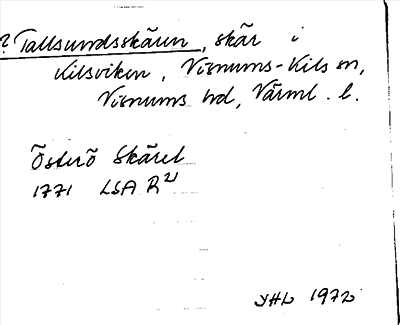 ? Tallsundsskären, skär i
Kilsviken, Visnums-Kils sn,
Visnums hd, Värml. l.
Österö Skäret
1771 LSA R²⁾
YHL 1972